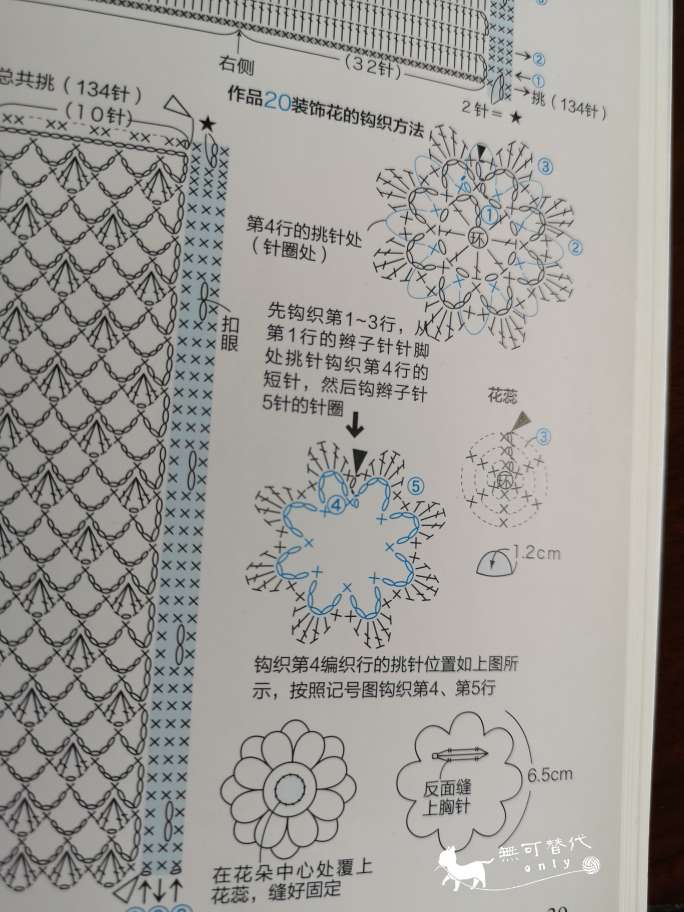 右侧
(32针)
②
①
挑（134针）
总共挑（134针）
（10针）
2针＝★
★
作品20装饰花的钩织方法
③
②
①
环
第4行的挑针处
（针圈处）
扣
眼
先钩织第1~3行，从
第1行的辫子针针脚
处挑针钩织第4行的
短针，然后钩辫子针
5针的针圈
花蕊
③
环
1.2cm
⑤
④
钩织第4编织行的挑针位置如上图所
示，按照记号图钩织第4、第5行
反面缝
上胸针
6.5cm
在花朵中心处覆上
花蕊，缝好固定
無可替代
only